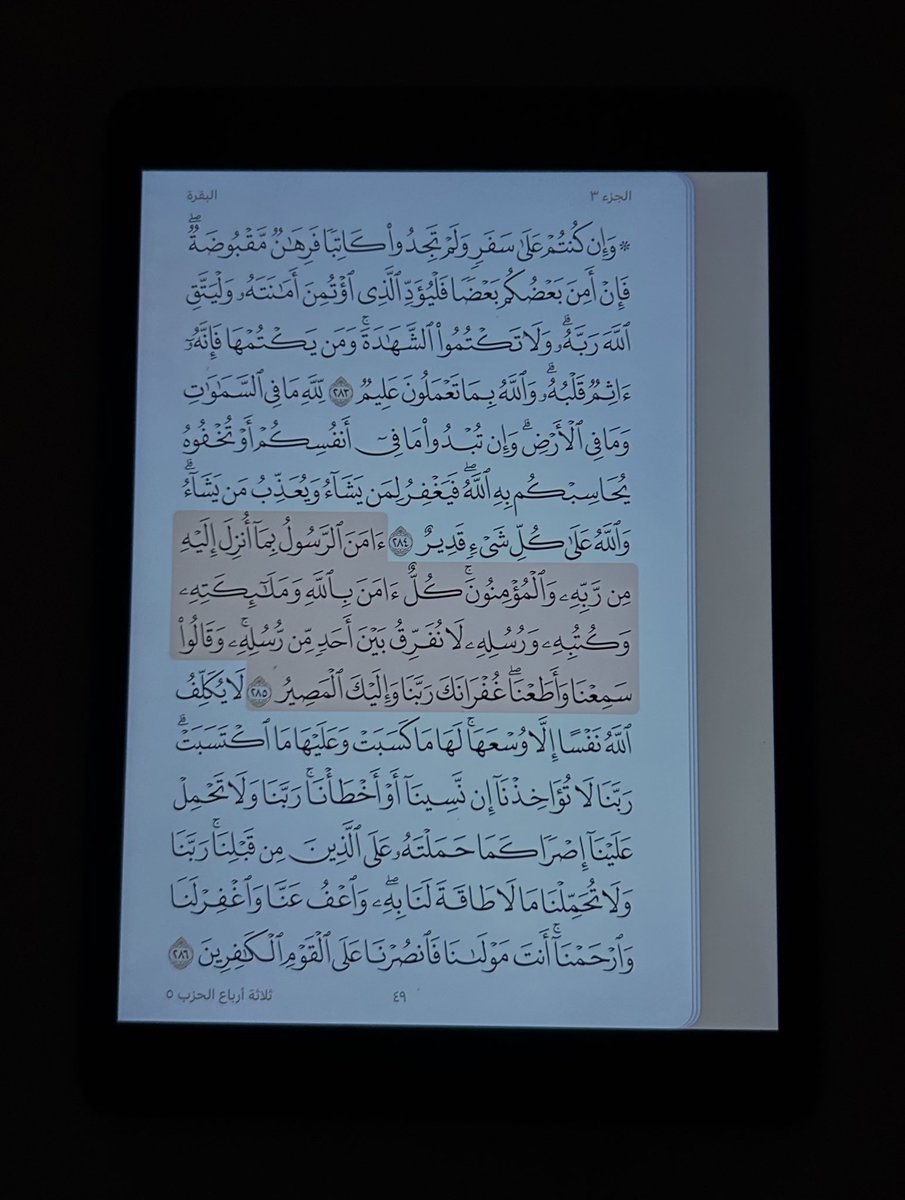 الجزء ٣
البقرة
۞ وَإِن كُنتُمْ عَلَىٰ سَفَرٍ وَلَمْ تَجِدُوا۟ كَاتِبًا فَرِهَـٰنٌ مَّقْبُوضَةٌ ۖ
فَإِنْ أَمِنَ بَعْضُكُم بَعْضًا فَلْيُؤَدِّ ٱلَّذِى ٱؤْتُمِنَ أَمَـٰنَتَهُۥ وَلْيَتَّقِ
ٱللَّهَ رَبَّهُۥ ۗ وَلَا تَكْتُمُوا۟ ٱلشَّهَـٰدَةَ ۚ وَمَن يَكْتُمْهَا فَإِنَّهُۥٓ
ءَاثِمٌ قَلْبُهُۥ ۗ وَٱللَّهُ بِمَا تَعْمَلُونَ عَلِيمٌ ٢٨٣ لِّلَّهِ مَا فِى ٱلسَّمَـٰوَٰتِ
وَمَا فِى ٱلْأَرْضِ ۗ وَإِن تُبْدُوا۟ مَا فِىٓ أَنفُسِكُمْ أَوْ تُخْفُوهُ
يُحَاسِبْكُم بِهِ ٱللَّهُ ۖ فَيَغْفِرُ لِمَن يَشَآءُ وَيُعَذِّبُ مَن يَشَآءُ ۗ
وَٱللَّهُ عَلَىٰ كُلِّ شَىْءٍ قَدِيرٌ ٢٨٤ ءَامَنَ ٱلرَّسُولُ بِمَآ أُنزِلَ إِلَيْهِ
مِن رَّبِّهِۦ وَٱلْمُؤْمِنُونَ ۚ كُلٌّ ءَامَنَ بِٱللَّهِ وَمَلَـٰٓئِكَتِهِۦ
وَكُتُبِهِۦ وَرُسُلِهِۦ لَا نُفَرِّقُ بَيْنَ أَحَدٍ مِّن رُّسُلِهِۦ ۚ وَقَالُوا۟
سَمِعْنَا وَأَطَعْنَا ۖ غُفْرَانَكَ رَبَّنَا وَإِلَيْكَ ٱلْمَصِيرُ ٢٨٥ لَا يُكَلِّفُ
ٱللَّهُ نَفْسًا إِلَّا وُسْعَهَا ۚ لَهَا مَا كَسَبَتْ وَعَلَيْهَا مَا ٱكْتَسَبَتْ ۗ
رَبَّنَا لَا تُؤَاخِذْنَآ إِن نَّسِينَآ أَوْ أَخْطَأْنَا ۚ رَبَّنَا وَلَا تَحْمِلْ
عَلَيْنَآ إِصْرًا كَمَا حَمَلْتَهُۥ عَلَى ٱلَّذِينَ مِن قَبْلِنَا ۚ رَبَّنَا
وَلَا تُحَمِّلْنَا مَا لَا طَاقَةَ لَنَا بِهِۦ ۖ وَٱعْفُ عَنَّا وَٱغْفِرْ لَنَا
وَٱرْحَمْنَآ ۚ أَنتَ مَوْلَىٰنَا فَٱنصُرْنَا عَلَى ٱلْقَوْمِ ٱلْكَـٰفِرِينَ ٢٨٦
٤٩
ثلاثة أرباع الحزب ٥